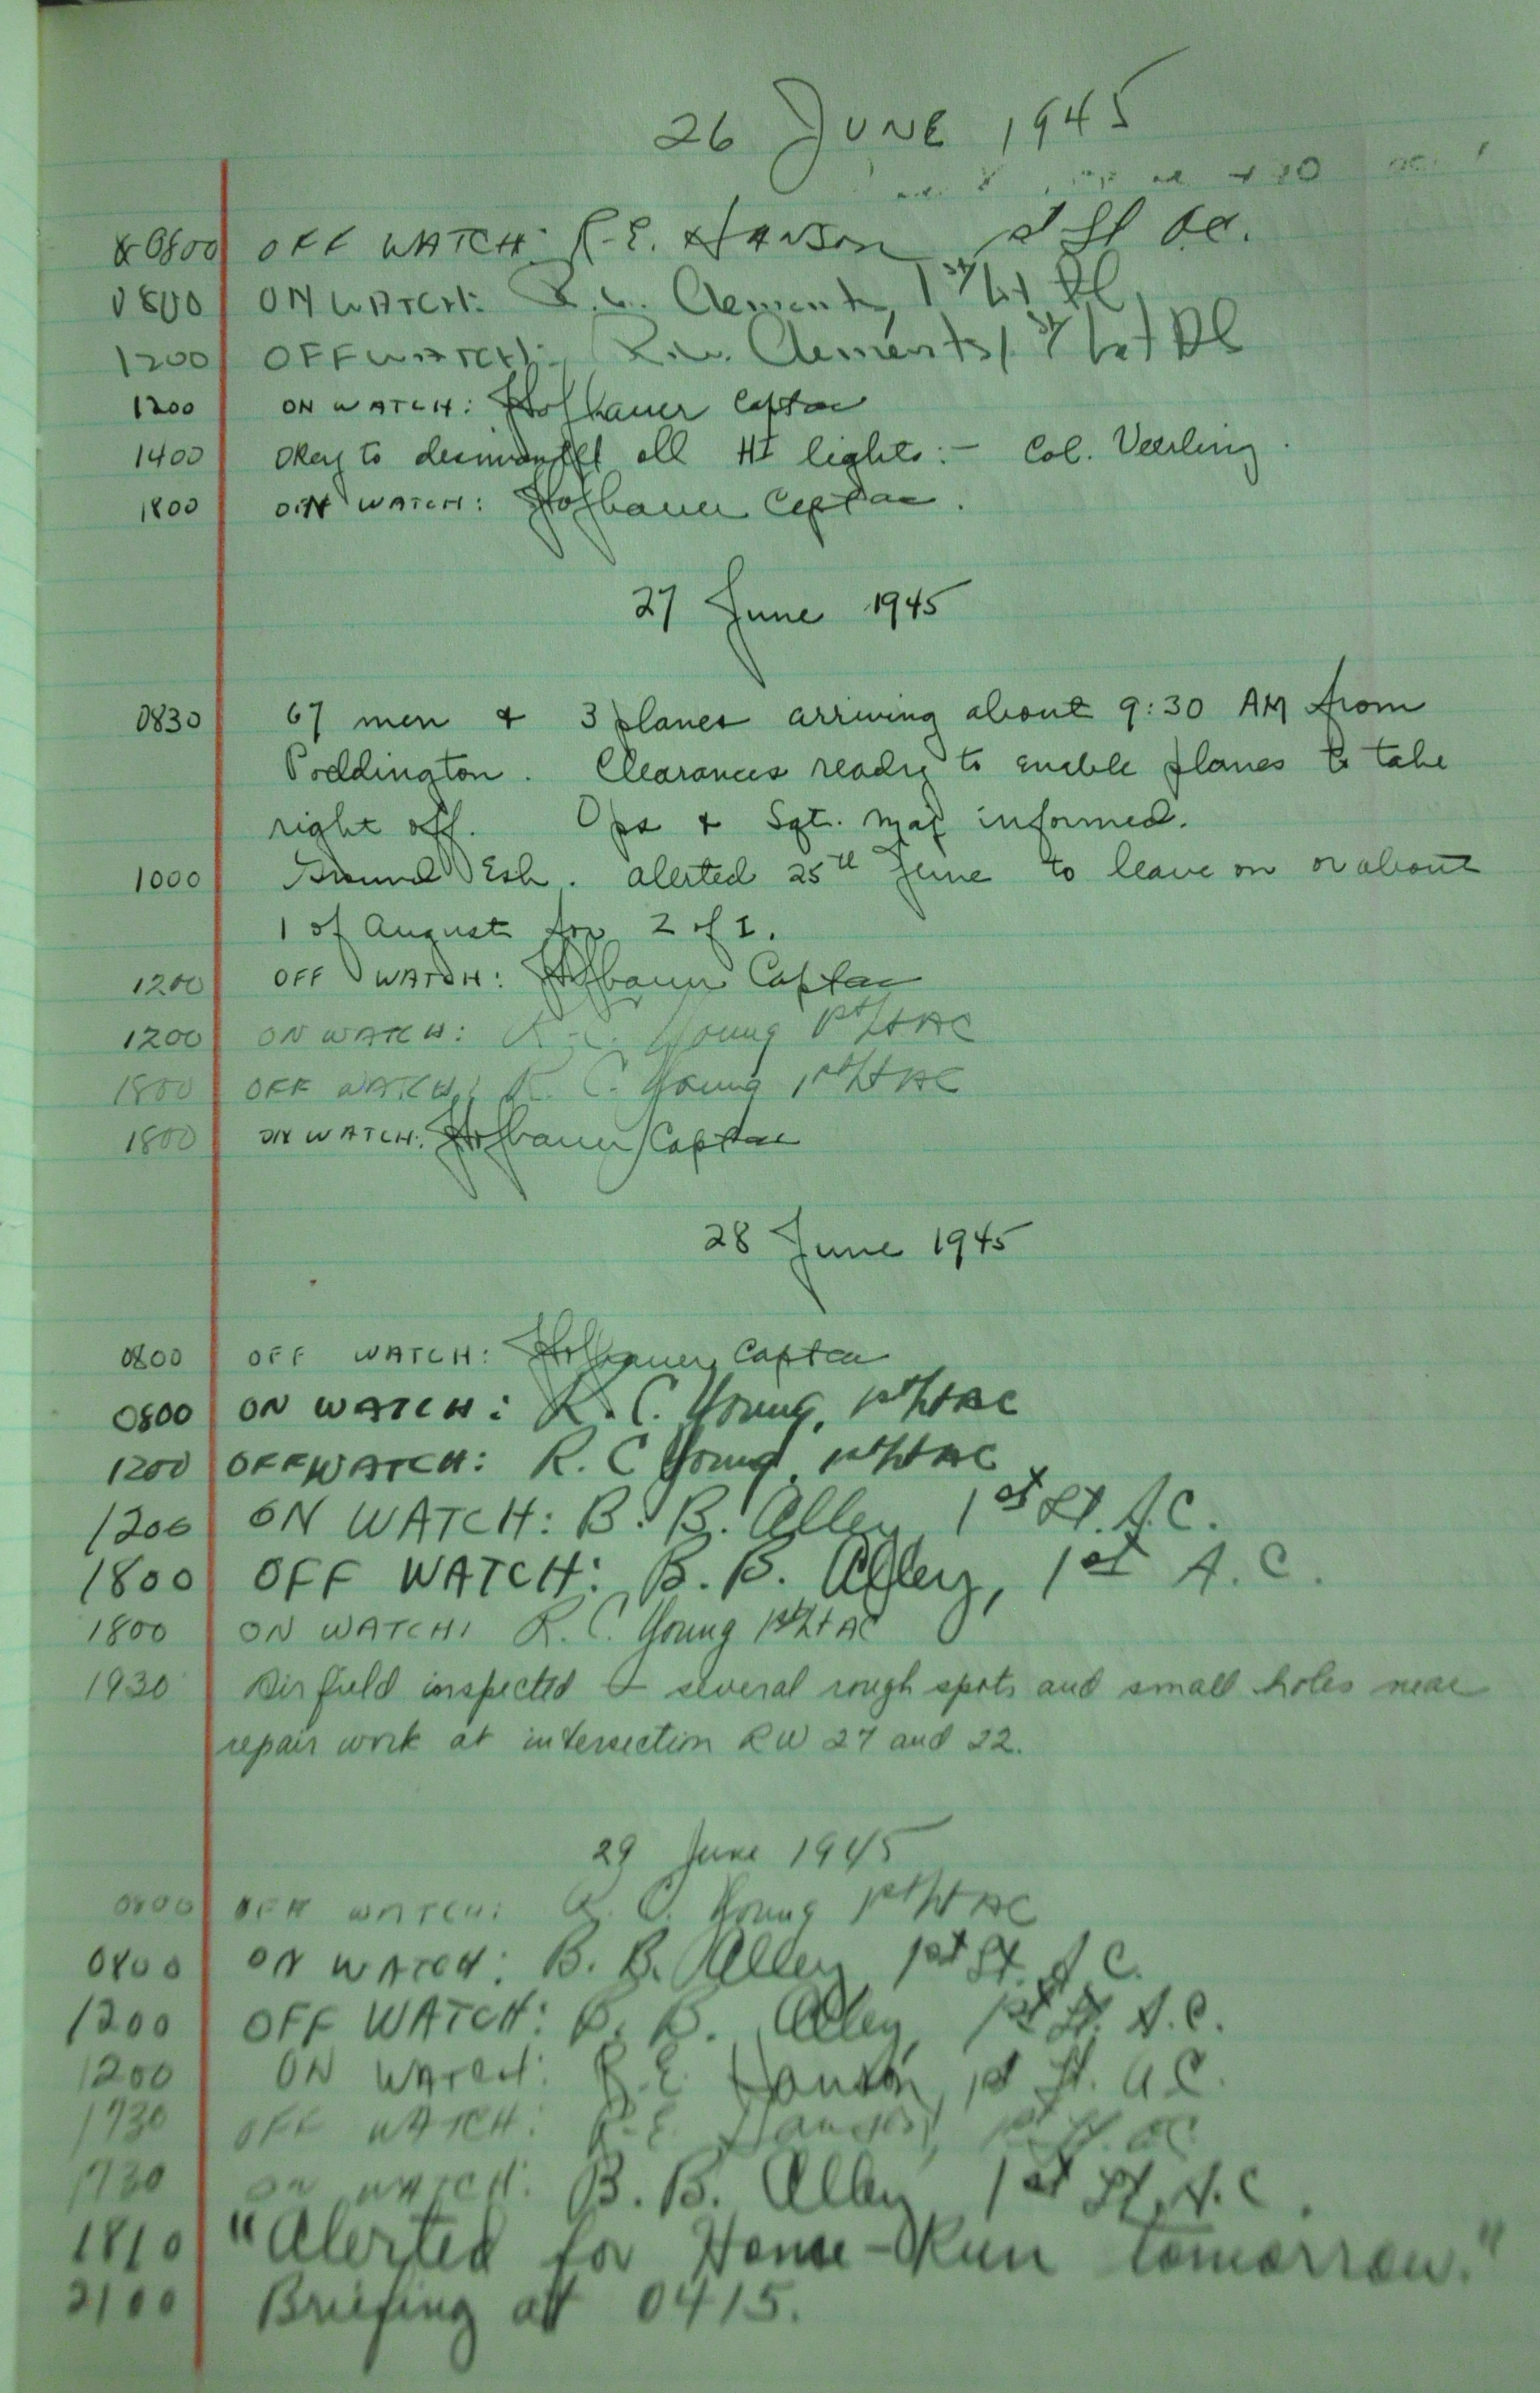 26 JUNE 1945
0800 OFF WATCH: R.E. HANSON 1st Lt AC.
0800 ON WATCH: R.W. Clements, 1st Lt AC
1200 OFF WATCH: R.W. Clements 1st Lt AC
1200 ON WATCH: Hofbauer Capt ac
1400 Okay to dismantel all HI lights:- Col. Veerling.
1800 WATCH: Hofbauer Capt ac.
27 June 1945
0830 67 men & 3 planes arriving about 9:30 AM from
Poddington. Clearances ready to enable planes to take
right off. Ops & Sgt. Maj informed.
1000 Ground Esh. alerted 25th June to leave on or about
1 of August for Z of I.
1200 OFF WATCH: Hofbauer Capt ac
1200 ON WATCH: R. C. Young 1st Lt AC
1800 OFF WATCH: R. C. Young 1st Lt AC
1800 ON WATCH: Hofbauer Capt ac
28 June 1945
0800 OFF WATCH: Hofbauer Capt ac
0800 ON WATCH: R. C. Young, 1st Lt AC
1200 OFF WATCH: R. C Young, 1st Lt AC
1200 ON WATCH: B. B. Alley, 1st Lt. A.C.
1800 OFF WATCH: B. B. Alley, 1st A.C.
1800 ON WATCH: R. C. Young 1st Lt AC
1930 Airfield inspected - several rough spots and small holes near
repair work at intersection RW 27 and 22.
29 June 1945
0800 OFF WATCH: R. C. Young 1st Lt AC
0800 ON WATCH: B. B. Alley 1st Lt. A C.
1200 OFF WATCH: B. B. Alley, 1st Lt. A.C.
1200 ON WATCH: R.E. Hanson, 1st Lt. A.C.
1730 OFF WATCH: R.E. Hanson, 1st Lt. AC
1730 ON WATCH: B. B. Alley 1st Lt. A.C.
1810 "Alerted for Home-Run tomorrow."
2100 Briefing at 0415.